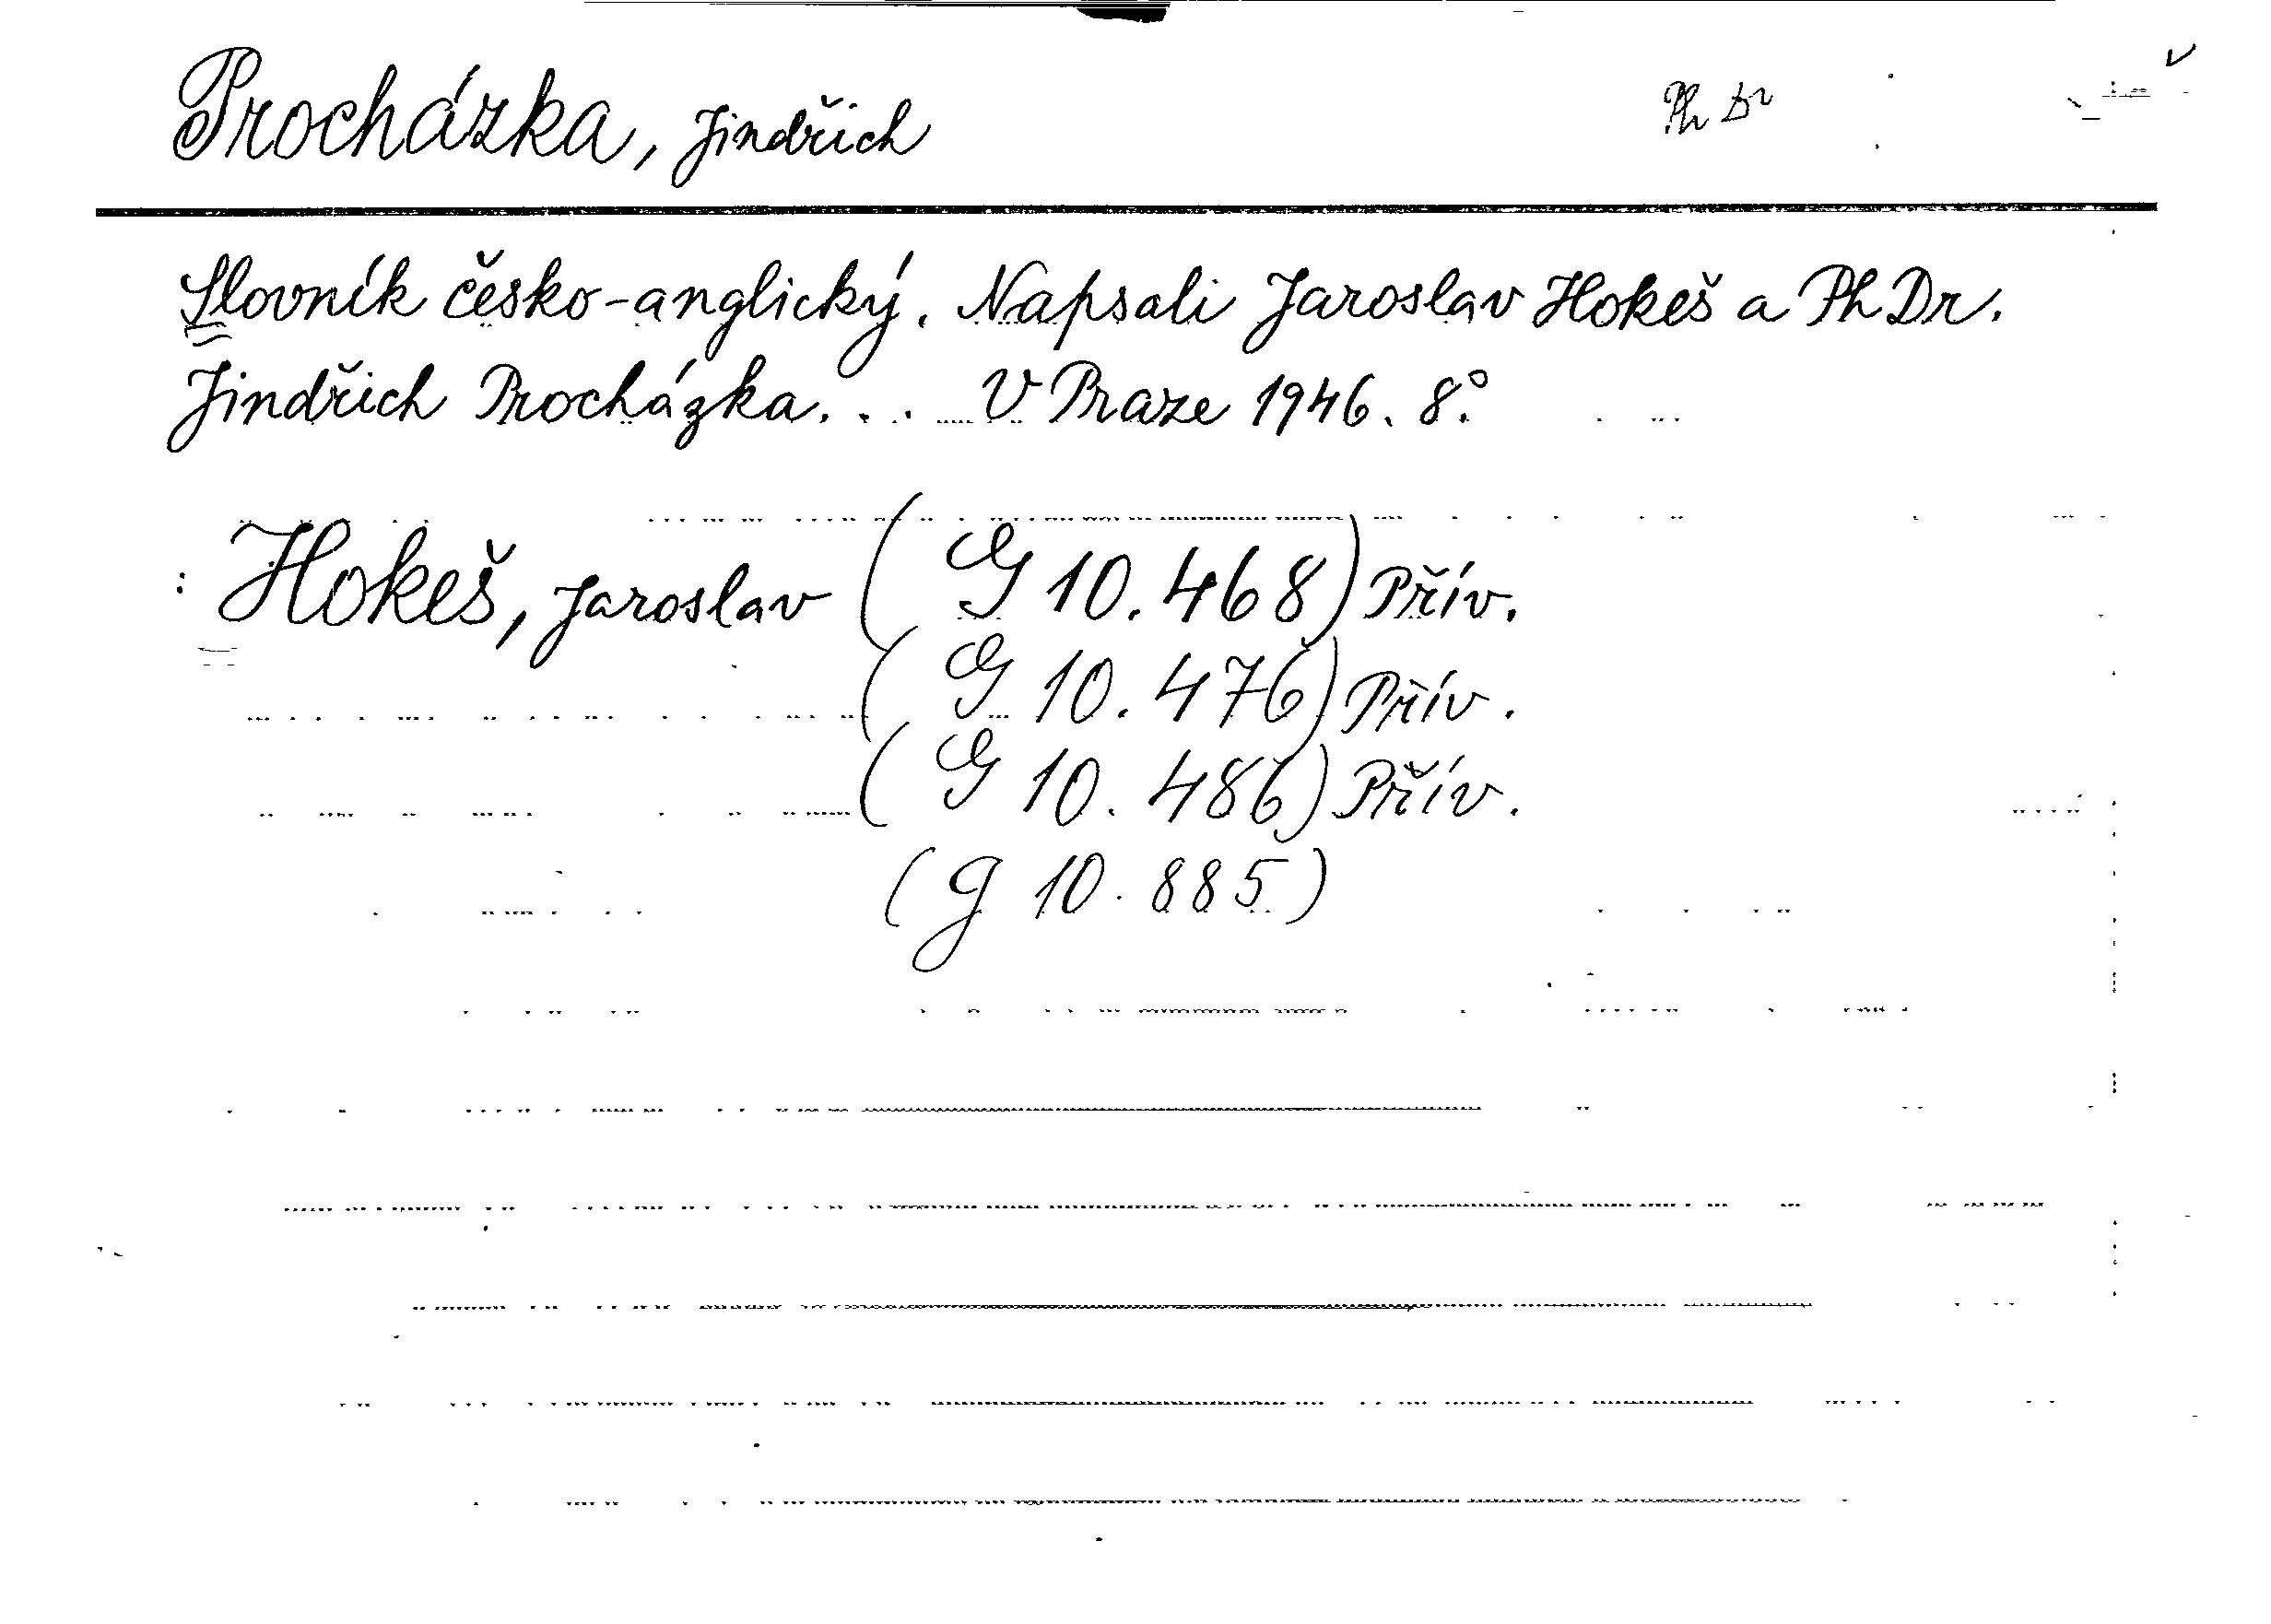 Procházka, Jindřich Ph Dr
Slovník česko-anglický. Napsali Jaroslav Hokeš a PhDr.
Jindřich Procházka. . . V Praze 1946. 8°.
: Hokeš, Jaroslav (G 10.468) Přív.
(G 10.476) Přív.
(G 10.486) Přív.
(g 10.885)